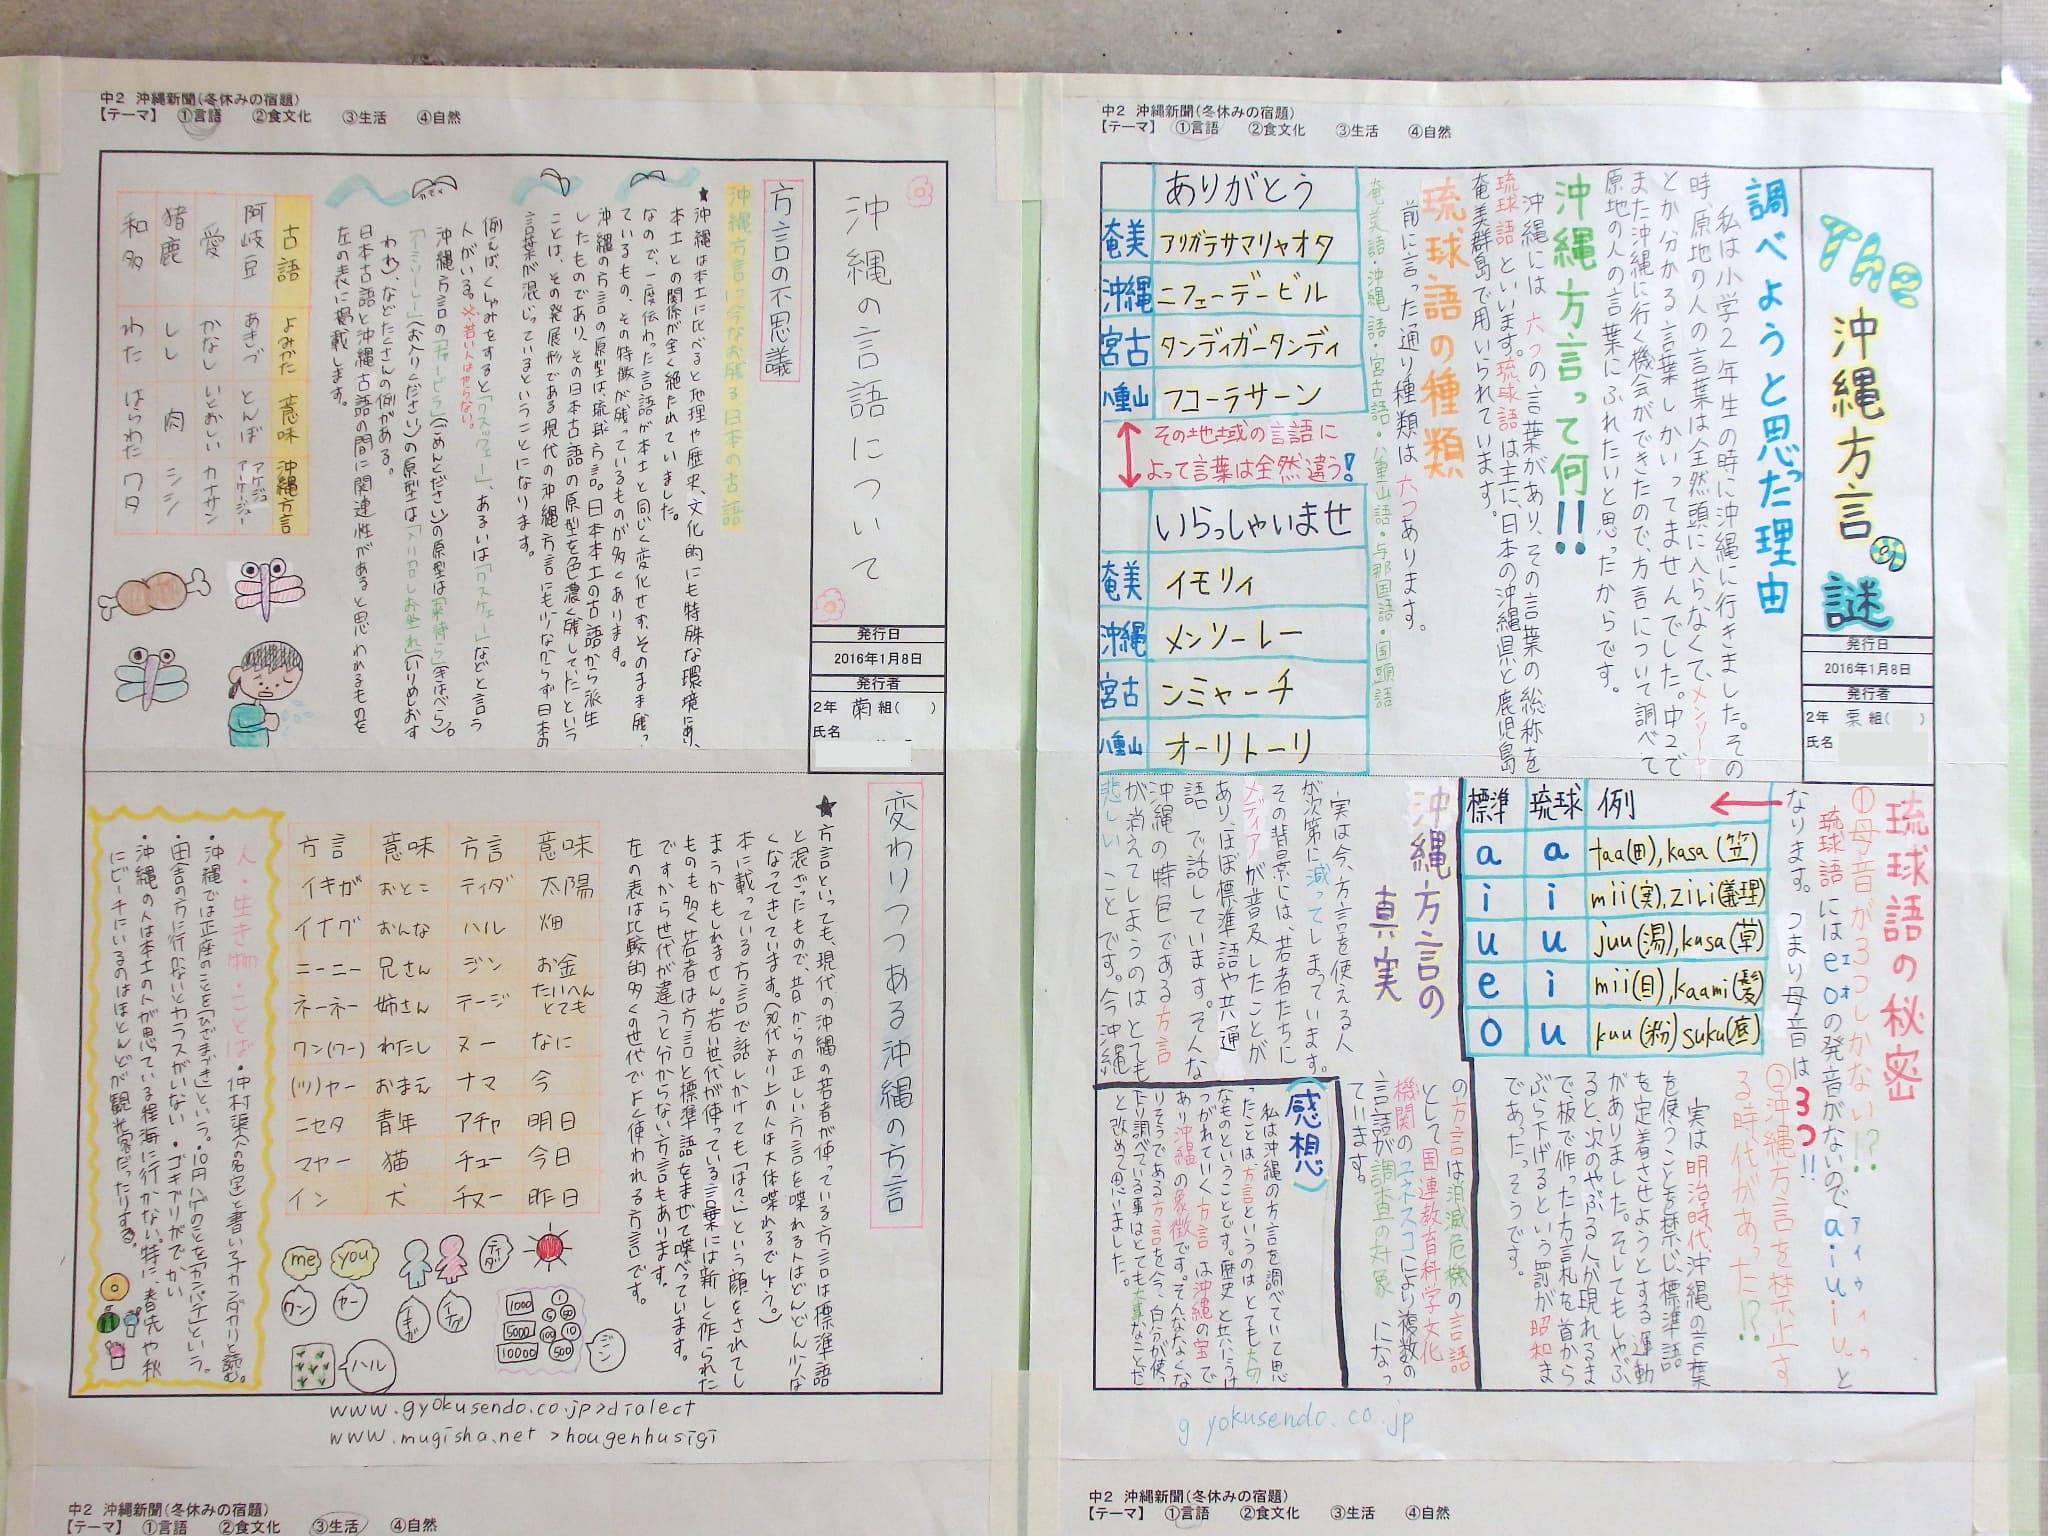 中2 沖縄新聞(冬休みの宿題)
【テーマ】 ①言語 ②食文化 ③生活 ④自然
沖縄の言語について
発行日
2016年1月8日
発行者
2年 菊 組( )
氏名
方言の不思議
沖縄方言に今なお残る日本の古語
★沖縄は本土に比べると地理や歴史、文化的にも特殊な環境にあり、
本土との関係が全く絶たれていました。
なので、一度伝わった言語が本土と同じく変化せず、そのまま残っ
ているもの、その特徴が残っているものが多くあります。
沖縄の方言の原型は琉球方言。日本本土の古語から派生
したものであり、その日本古語の原型を色濃く残してたという
ことは、その発展形である現代の沖縄方言にも少なからず日本の
言葉が混じっているということになります。
例えば、くしゃみをすると「クスッェー」、あるいは「クスケェー」などと言う
人がいる。※若い人はやらない。
われ)、などたくさんの例がある。
日本古語と沖縄古語の間に関連性があると思われるものを
左の表に掲載します。
古語 よみかた 意味 沖縄方言
阿岐豆 あきづ とんぼ アケジュ アーケージュー
愛 かなし いとおしい カナサン
猪鹿 しし 肉 シシ
和多 わた はらわた ワタ
変わりつつある沖縄の方言
★方言といっても、現代の沖縄の若者が使っている方言は標準語
と混ざったもので、昔からの正しい方言を喋れる人はどんどん少な
くなってきています。(30代より上の人は大体喋れるでしょう。)
本に載っている方言で話しかけても「は?」という顔をされてし
まうかもしれません。若い世代が使っている言葉には新しく作られた
ものも多く、若者は方言と標準語をまぜて喋べっています。
ですから世代が違うと分からない方言もあります。
左の表は比較的多くの世代でよく使われる方言です。
方言 意味 方言 意味
イキガ おとこ ティダ 太陽
イナグ おんな ハル 畑
ニーニー 兄さん ジン お金
ネーネー 姉さん テージ たいへん とても
ワン(ワー) わたし ヌー なに
(ッ)ヤー おまえ ナマ 今
ニセタ 青年 アチャ 明日
マヤー 猫 チュー 今日
イン 犬 チヌー 昨日
me
you
ワン
ヤー
イキガ
イナグ
ティダ
ハル
ジン
1000
5000
10000
1
5
50
100
10
500
人・生き物・ことば
・仲村渠(人の名字)と書いうナカンダカリと読む。
・沖縄では正座のことを「ひざまづき」という。
・10円ハゲのことを「カンパチ」という。
・田舎の方に行かないとカラスがいない
・ゴキブリがでかい
・沖縄の人は本土の人が思っている程海に行かない。特に、春先や秋
にビーチにいるのはほとんどが観光客だったりする。
www.gyokusendo.co.jp>dialect
www.mugisha.net >hougenhusigi
中2 沖縄新聞(冬休みの宿題)
【テーマ】 ①言語 ②食文化 ③生活 ④自然
The 沖縄方言の謎
発行日
2016年1月8日
発行者
2年 栗 組( )
氏名
調べようと思った理由
私は小学2年生の時に沖縄に行きました。その
時、原地の人の言葉は全然頭に入らなくて、メンソーレー
とか分かる言葉しかいってませんでした。中2で
また沖縄に行く機会ができたので、方言について調べて
原地の人の言葉にふれたいと思ったからです。
沖縄方言って何!!
沖縄には 六つの言葉があり、その言葉の総称を
琉球語 といいます。琉球語 は主に、日本の沖縄県と鹿児島
奄美群島で用いられています。
琉球語の種類
前に言った通り種類は 六つあります。
奄美語・沖縄語・宮古語・八重山語・与那国語・国頭語
ありがとう
奄美 アリガテサマリャオタ
沖縄 ニフェーデービル
宮古 タンディガータンディ
八重山 フコーラサーン
その地域の言語に
よって言葉は全然違う!
いらっしゃいませ
奄美 イモリィ
沖縄 メンソーレー
宮古 ンミャーチ
八重山 オーリトーリ
琉球語の秘密
①母音が3つしかない!?
琉球語にはe(エ)o(オ)の発音がないのでa i u i u(アィゥィゥ)と
なります。つまり母音は 3つ!!
標準 琉球 例
a a taa(田),kasa(笠)
i i mii(実),zili(義理)
u u juu(湯),kusa(草)
e i mii(目),kaami(髪)
o u kuu(粉)suku(底)
②沖縄方言を禁止す
る時代があった!?
実は明治時代、沖縄の言葉
を使うことを禁じ、標準語
を定着させようとする運動
がありました。そしてもしやぶ
ると、次のやぶる人が現れるま
で板で作った方言札を首から
ぶら下げるという罰が昭和ま
であったそうです。
沖縄方言の真実
実は今、方言を使える人
が次第に減ってしまっています。
その背景には、若者たちに
メディアが普及したことが
あり、ほぼ標準語や共通
語で話しています。そんな
沖縄の特色である方言
が消えてしまうのはとても
悲しいことです。今沖縄
の方言は消滅危機の言語
として国連教育科学文化
機関のユネスコにより複数の
言語が調査の対象 になっ
ています。
(感想)
私は沖縄の方言を調べていて思
ったことは、方言というのはとても大切
なものということです。歴史と共にうけ
つがれていく方言 は沖縄の宝で
あり沖縄の象徴です。そんななくな
りそうである方言を今、自分が使っ
たり調べている事はとても大事なことだ
と改めて思いました。
gyokusendo.co.jp
中2 沖縄新聞(冬休みの宿題)
【テーマ】 ①言語 ②食文化 ③生活 ④自然
中2 沖縄新聞(冬休みの宿題)
【テーマ】 ①言語 ②食文化 ③生活 ④自然